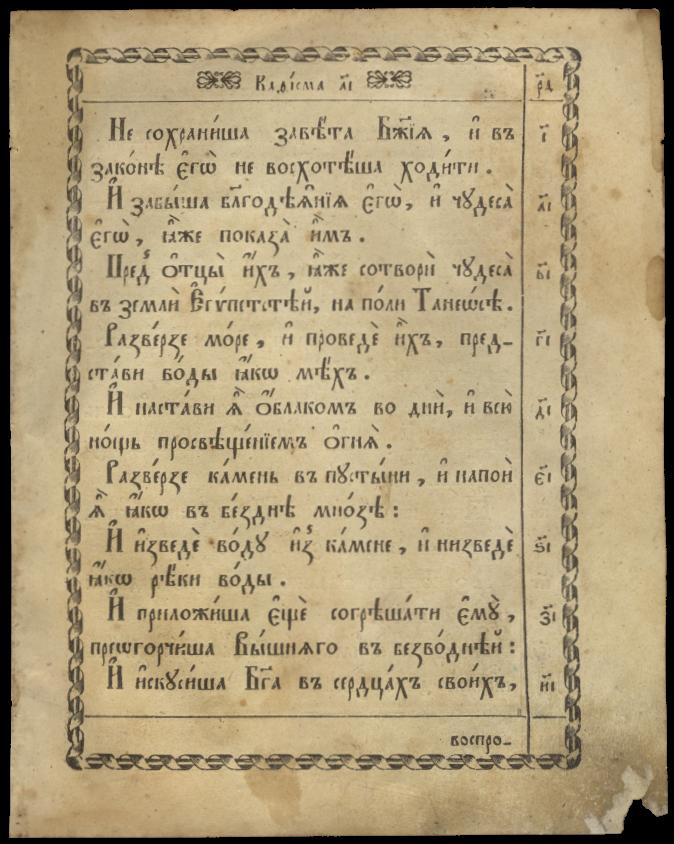 Каѳі́сма а҃і р҃д
Не сохрани́ша завѣ́та Бж҃їѧ, и҆ въ і҃
зако́нѣ є҆гѡ̀ не восхотѣ́ша ходи́ти.
И҆ забы́ша бл҃годѣѧ҆́нїѧ є҆гѡ̀, и҆ чꙋдеса̀ а҃і
є҆гѡ̀, ꙗ҆̀же показа̀ и҆̀мъ.
Пред̾ ѻ҆тцы̀ и҆́хъ, ꙗ҆̀же сотворѝ чꙋдеса̀ в҃і
въ землѝ Є҆гѵ́петстѣй, на по́ли Танеѡ́сѣ.
Разве́рзе мо́ре, и҆ проведѐ и҆̀хъ, пред- г҃і
ста́ви во́ды ꙗ҆́кѡ мѣ́хъ.
И҆ наста́ви ѧ҆̀ ѻ҆́блакомъ во днѝ, и҆ всю̀ д҃і
но́щь просвѣще́нїемъ ѻ҆гнѧ̀.
Разве́рзе ка́мень въ пꙋсты́ни, и҆ напоѝ є҃і
ѧ҆̀ ꙗ҆́кѡ въ бе́зднѣ мно́зѣ:
И҆ и҆зведѐ во́дꙋ и҆з̾ ка́мене, и҆ низведѐ ѕ҃і
ꙗ҆́кѡ рѣ́ки во́ды.
И҆ приложи́ша є҆щѐ согрѣша́ти є҆мꙋ̀, з҃і
преѡгорчи́ша Вы́шнѧго въ безво́днѣй:
И҆ и҆скꙋси́ша Бг҃а въ сердца́хъ свои́хъ, и҃і
воспро-